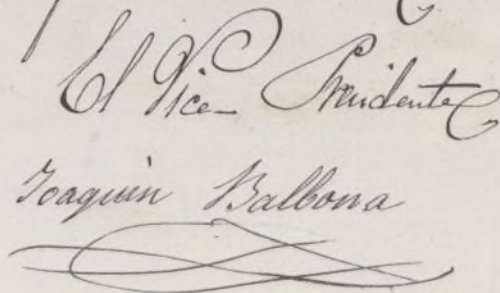 El Vice Presidente
Joaquin Balbona